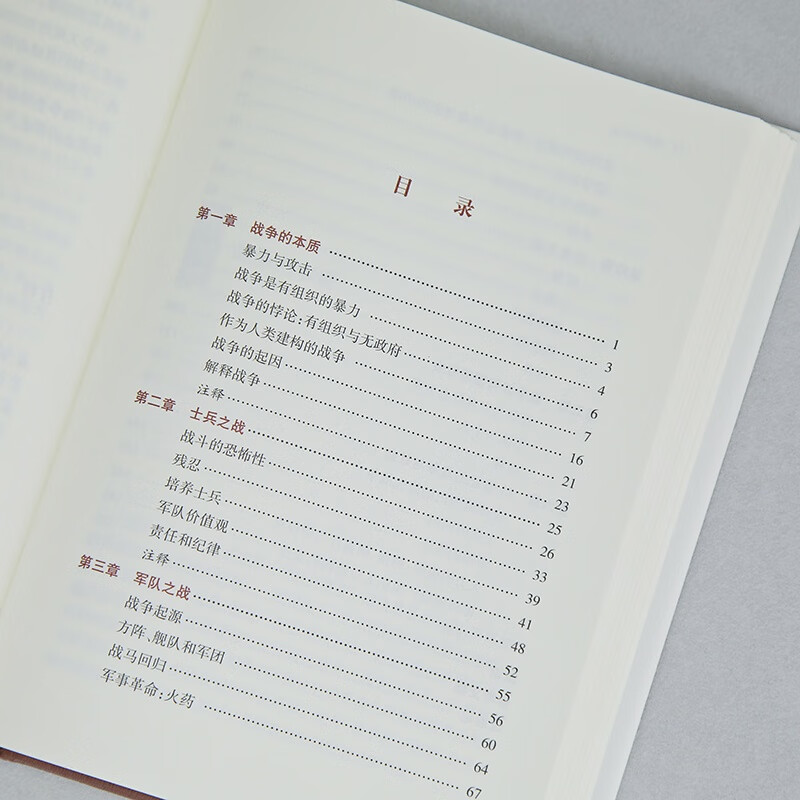 目 录
第一章 战争的本质 …… 1
暴力与攻击 …… 3
战争是有组织的暴力 …… 4
战争的悖论:有组织与无政府 …… 6
作为人类建构的战争 …… 7
战争的起因 …… 16
解释战争 …… 21
注释 …… 23
第二章 士兵之战 …… 25
战斗的恐怖性 …… 26
残忍 …… 33
培养士兵 …… 39
军队价值观 …… 41
责任和纪律 …… 48
注释 …… 52
第三章 军队之战 …… 55
战争起源 …… 56
方阵、舰队和军团 …… 60
战马回归 …… 64
军事革命:火药 …… 67